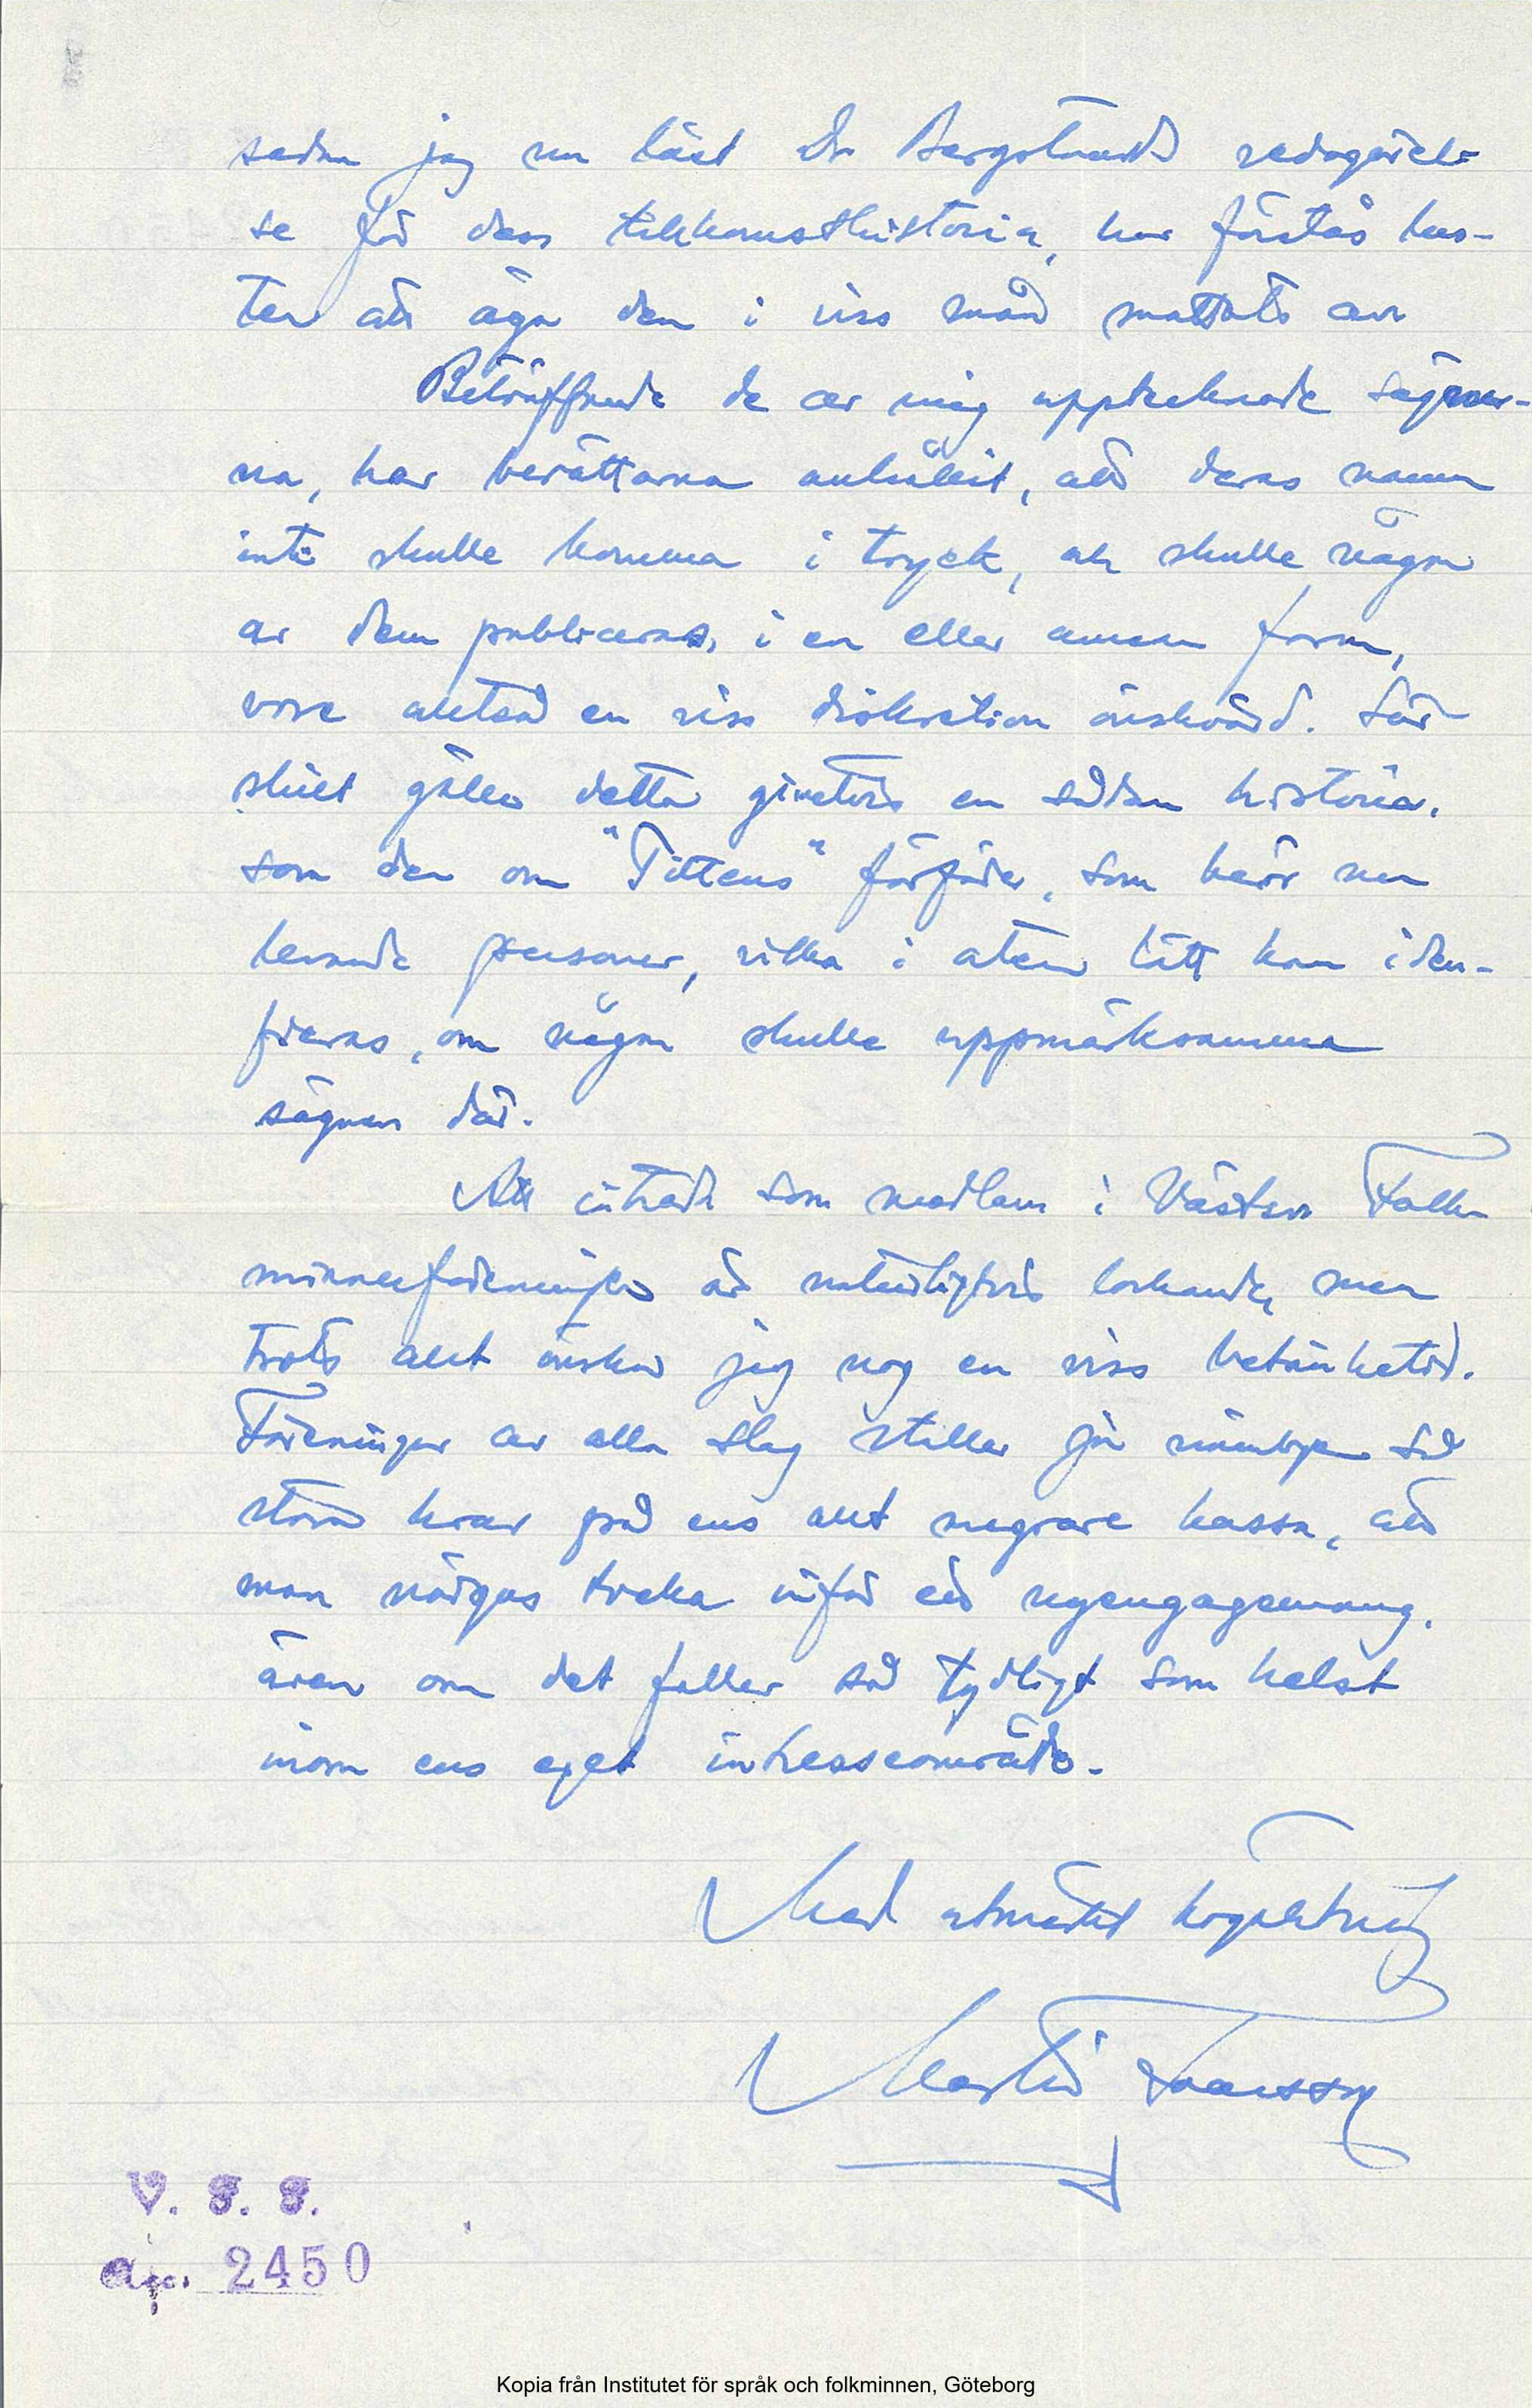 sedan jag nu läst Dr Bergstrands redogörel-
se för dess tillkomsthistoria, har förstås lus-
ten att äga den i viss mån mattats av
Beträffande de av mig upptecknade sägner-
na, har berättarna anhållit, att deras namn
inte skulle komma i tryck, och skulle någon
av dem publiceras, i en eller annan form,
vore alltså en viss diskretion önskvärd. Sär-
skilt gäller detta givetvis en sådan historia,
som den om "Tittens" förfäder, som berör nu
levande personer, vilka i orten lätt kan iden-
fieras, om någon skulle uppmärksamma
sägnen där.
Att inträda som medlem i Västsv Folk-
minnesföreningen är naturligtvis lockande, men
trots allt önskar jag nog en viss betänketid.
Föreningar av alla slag ställer ju nämligen så
stora krav på ens allt magrare kassa, att
man nödgas tveka inför ett nyengagemang,
även om det faller så tydligt som helst
inom ens eget intresseområde.
Med utmärkt högaktning
Martin
V. F. F.
2450
Kopia från Institutet för språk och folkminnen, Göteborg